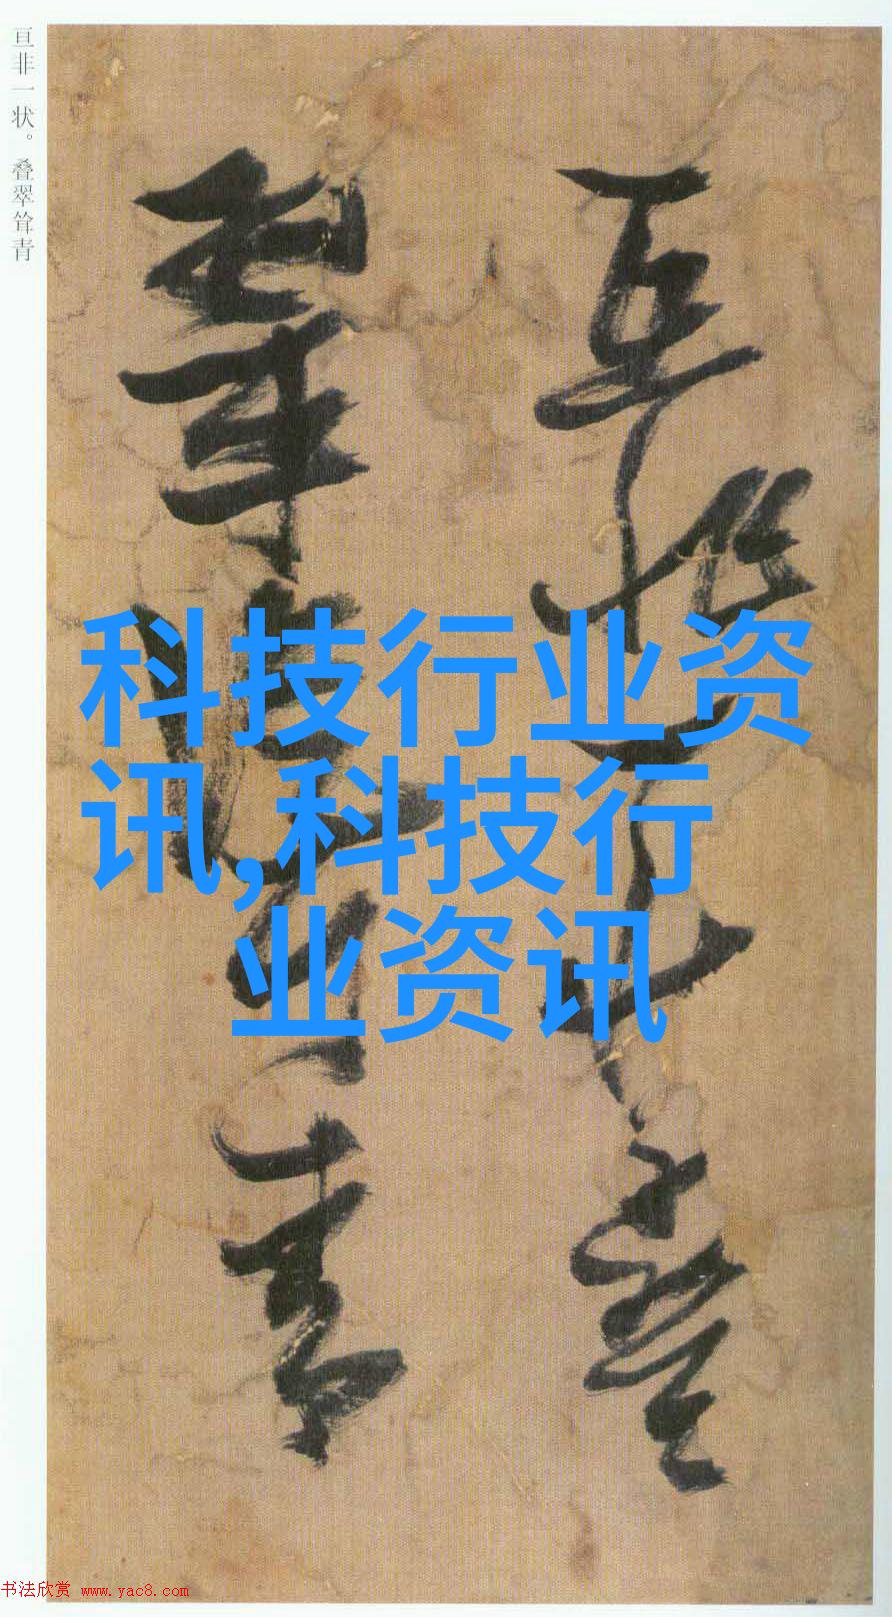 亘非一状。叠翠耸青
亘非一状叠
翠耸青
科技行业资
讯,科技行
业资讯
书法欣赏 www.yac8.com